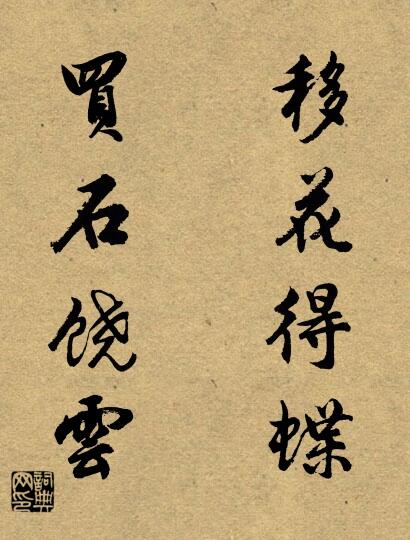 移花得蝶
買石饶雲
詞典网印